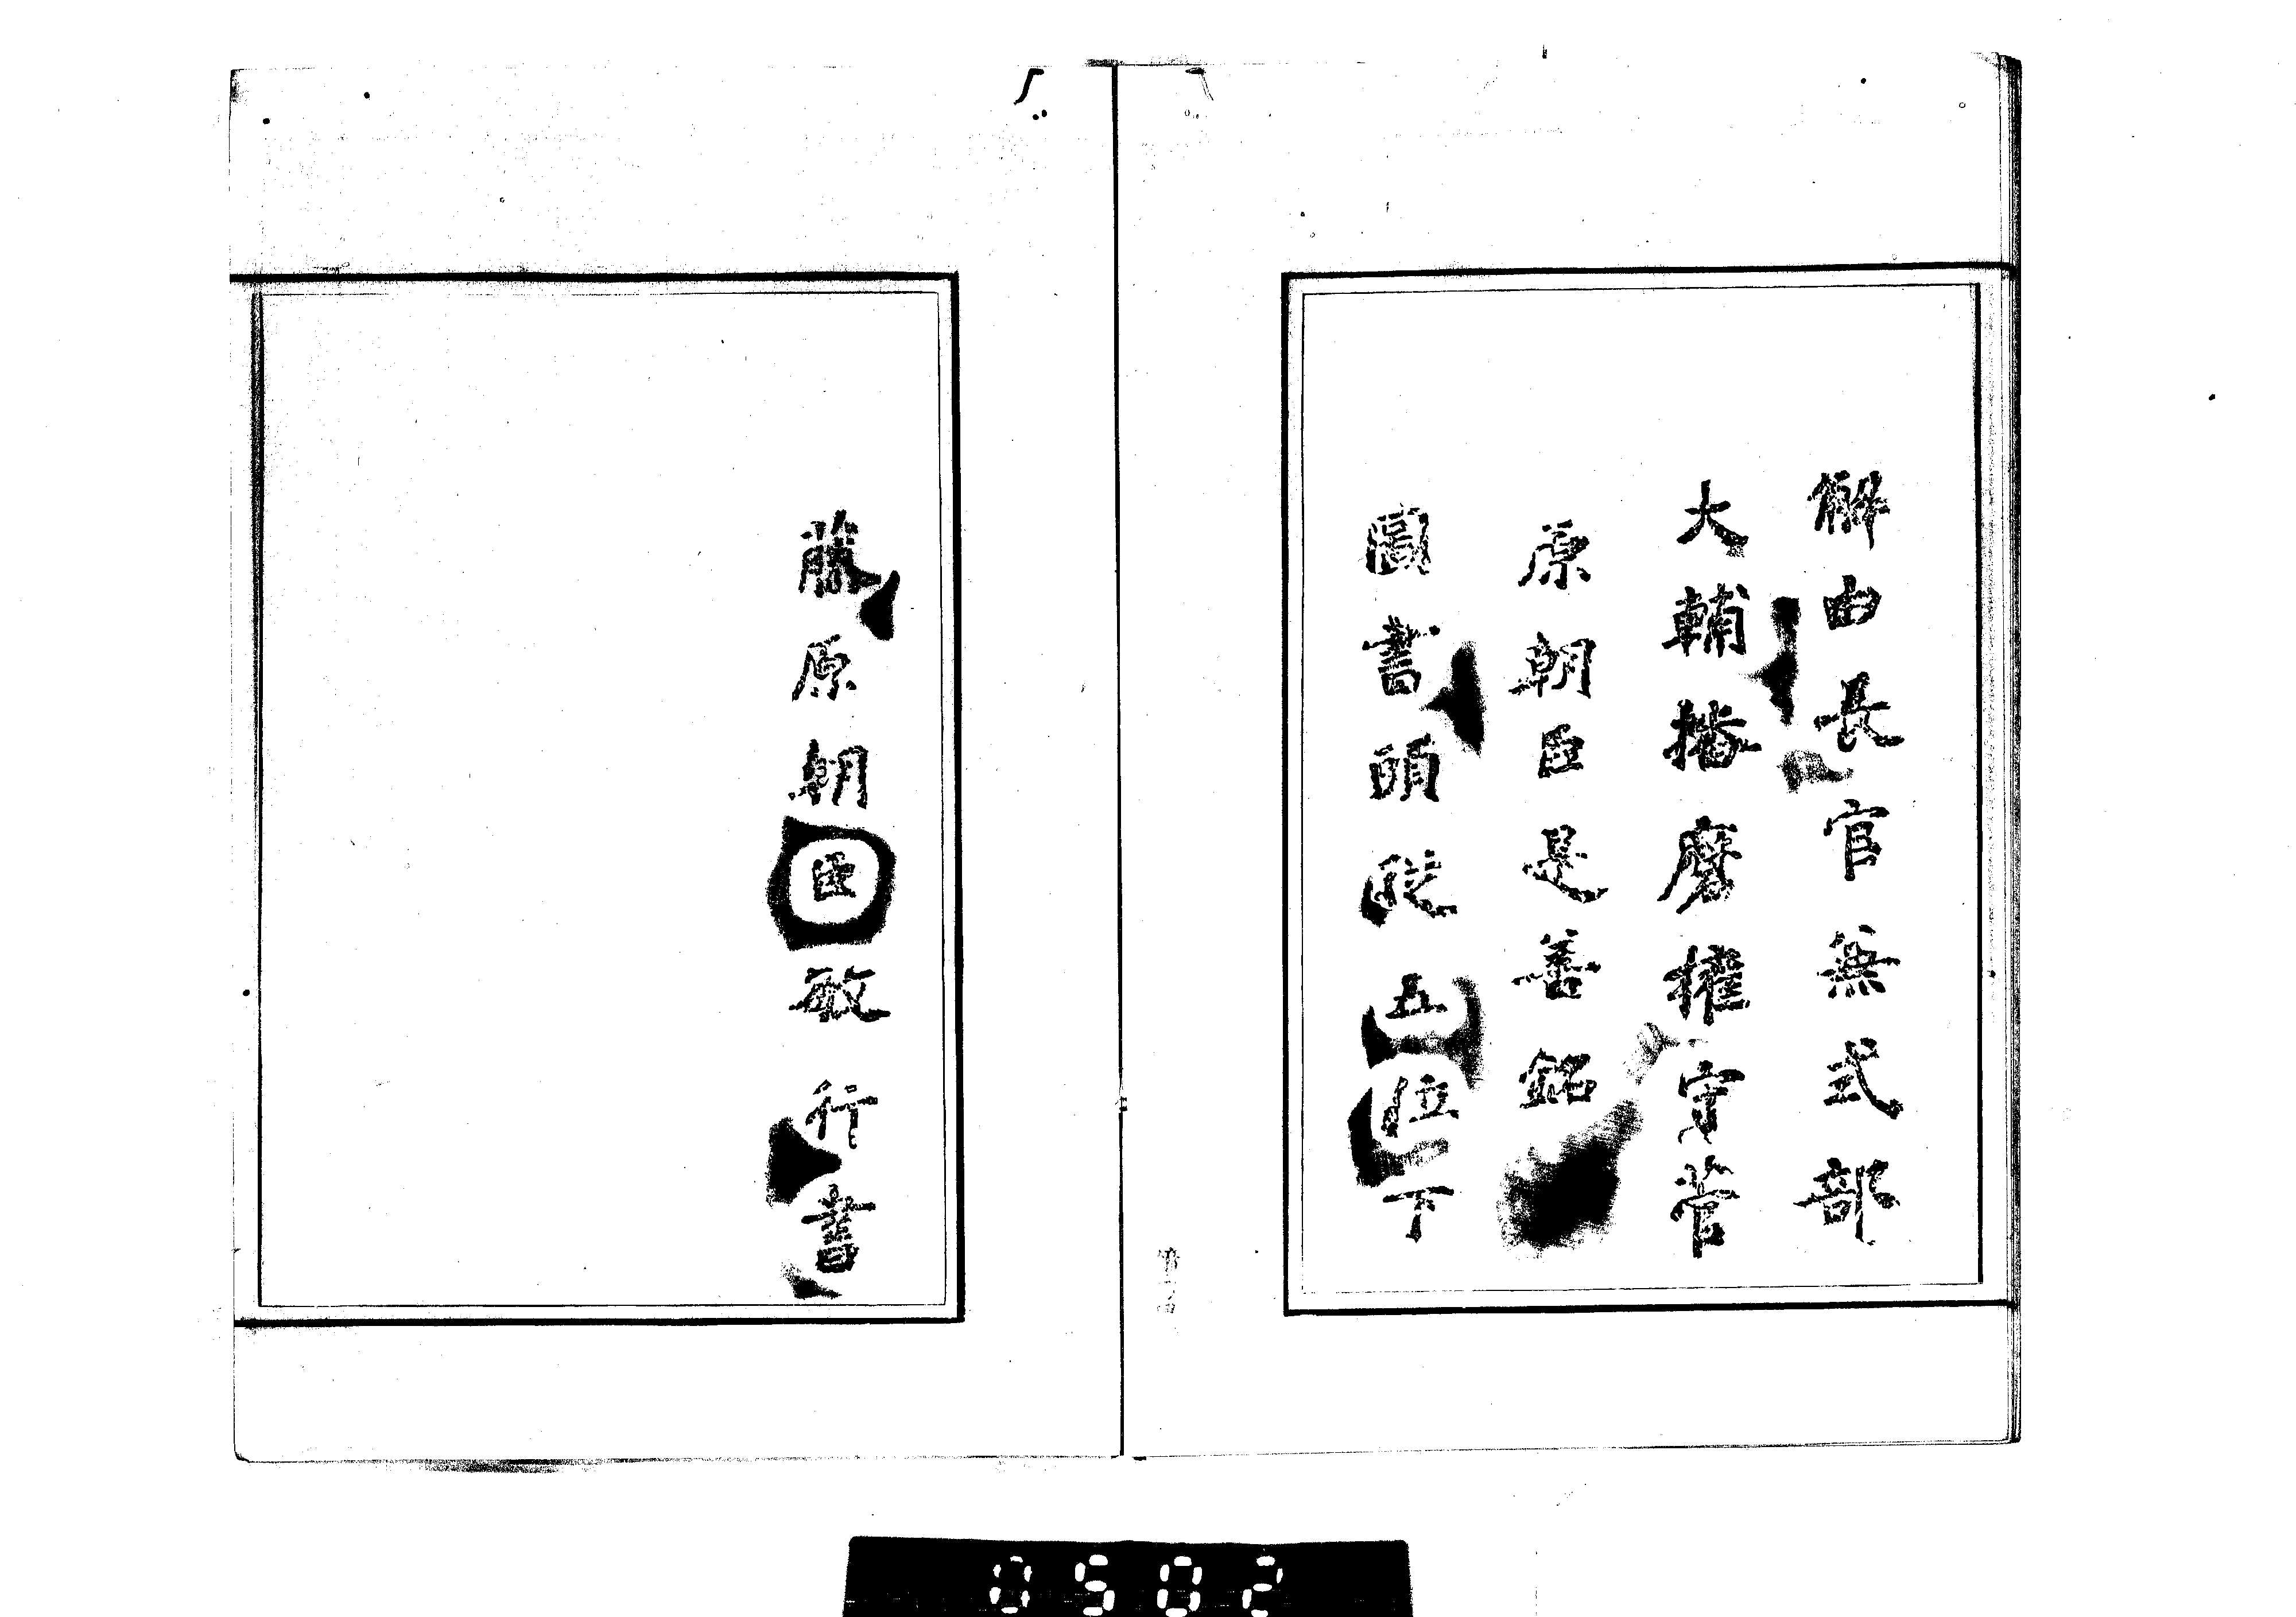 解由長官兼式部
大輔播磨權守菅
原朝臣是善銘
圖書頭從五位下
藤原朝臣敏行書
0502